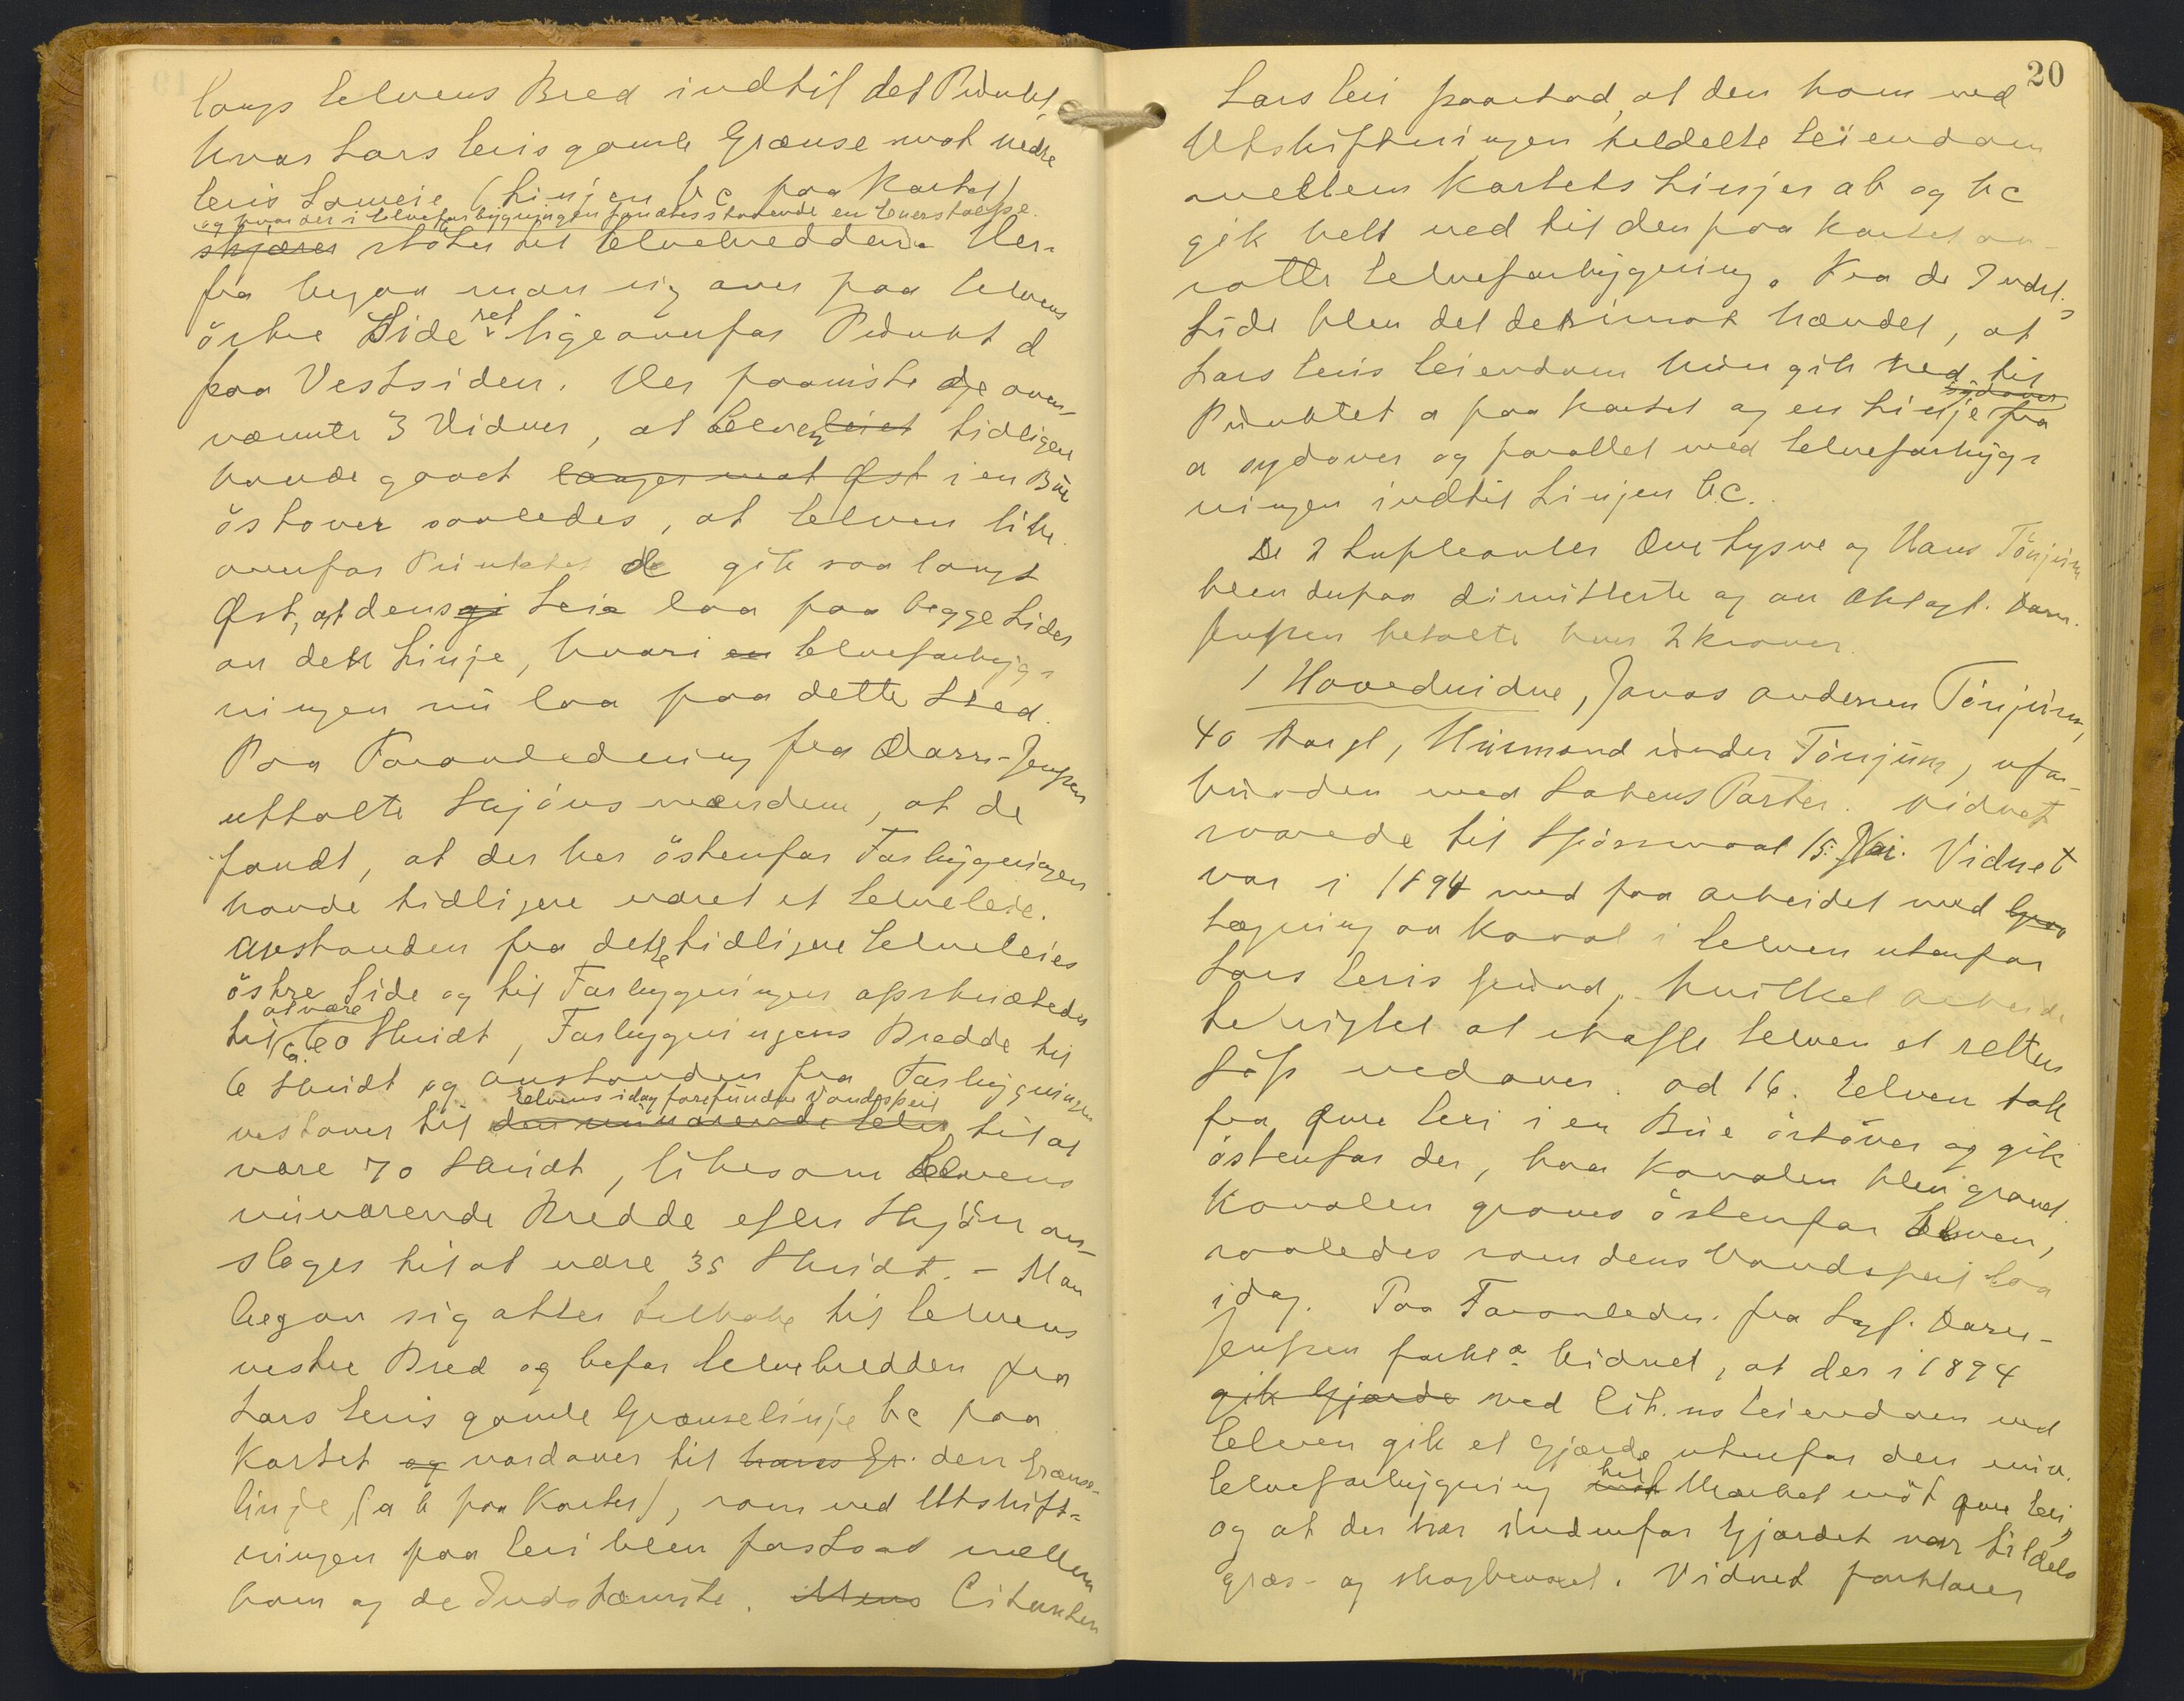 langs Elvens Bred indtil det Punkt,
hvor Lars Eris gamle Grænse mot nedre
Eris Sameie (Linjen bc paa Kartet)
og hvor der i Elveforbygningen fandtes staaende en Enerstolpe.
skjærer støter til Elvebredden. Her-
fra begav man sig over paa Elvens
østre Side ret ligeoverfor Punkt d
paa Vestsiden. Her paaviste de oven-
nævnte 3 Vidner, at Elven leiet tidligere
havde gaaet længer mot Øst i en Bue
østover saaledes, at Elven like
overfor Punktet d gik saa langt
Øst, at dens Leie laa paa begge Sider
av den Linje, hvori en Elveforbyg-
ningen nu laa paa dette Sted.
Paa Foranledning fra Darre-Jenssen
uttalte Skjønsmændene, at de
fandt, at der her østenfor Forbygningen
havde tidligere været et Elveleie.
Avstanden fra dette tidligere Elveleies
østre Side og til Forbygningen opskrittedes
til at være ca. 60 Skridt, Forbygningens Bredde til
6 Skridt og avstanden fra Forbygningen
vestover til den nuværende Elv Elvens idag forefundne Vandspeil til at
være 70 Skridt, likesom Elvens
nuværende Bredde efter Skjøn an-
sloges til at være 35 Skridt. - Man
begav sig atter tilbake til Elvens
vestre Bred og befor Elvebredden fra
Lars Eris gamle Grænselinje bc paa
Kartet og nordover til hans Gr. den Grænse-
linje (a b paa Kartet), som ved Utskift-
ningen paa Eri blev fastsat mellem
ham og de Indstævnte. Mens Citanten
20
Lars Eri paastod, at den ham ved
Utskiftningen tildelte Eiendom
mellem Kartets Linjer ab og bc
gik helt ned til den paa Kartet an-
satte Elveforbygning. Fra de Indst.s
Side blev det derimot hævdet, at
Lars Eris Eiendom kun gik ned til
Punktet a paa Kartet og en Linje sydover fra
a sydover og parallel med Elveforbyg-
ningen indtil Linjen bc.
De 2 Supleanter Ove Lysne og Hans Tønjum
blev derpaa dimitterte og av Oksagf. Darre-
Jenssen betalte hver 2 kroner.
1 Hovedvidne, Jonas Andersen Tønjum,
40 Aar gl, Husmand under Tønjum, ufor-
bunden med Sakens Parter. Vidnet
svarede til Spørsmaal 15: Nei. Vidnet
var i 1894 med paa arbeidet med Grav
tægning av Kanal i Elven utenfor
Lars Eris Grund, hvilket arbeide
bevirket at skaffe Elven et rettere
Løp nedover. ad 16. Elven tok
fra Øvre Eri i en Bue østover og gik
østenfor der, hvor Kanalen blev gravet.
Kanalen graves østenfor Elven,
saaledes som dens Vandspeil laa
idag. Paa Foranledn. fra Sagf. Darre-
Jenssen forkl. Vidnet, at der i 1894
gik Gjærde ved Cit.ns Eiendom ved
Elven gik et Gjærde utenfor den nuv.
Elveforbygning mot til Merket mot Øvre Eri,
og at der var indenfor Gjærdet var tildels
græs- og skogbevoxet. Vidnet forklarer